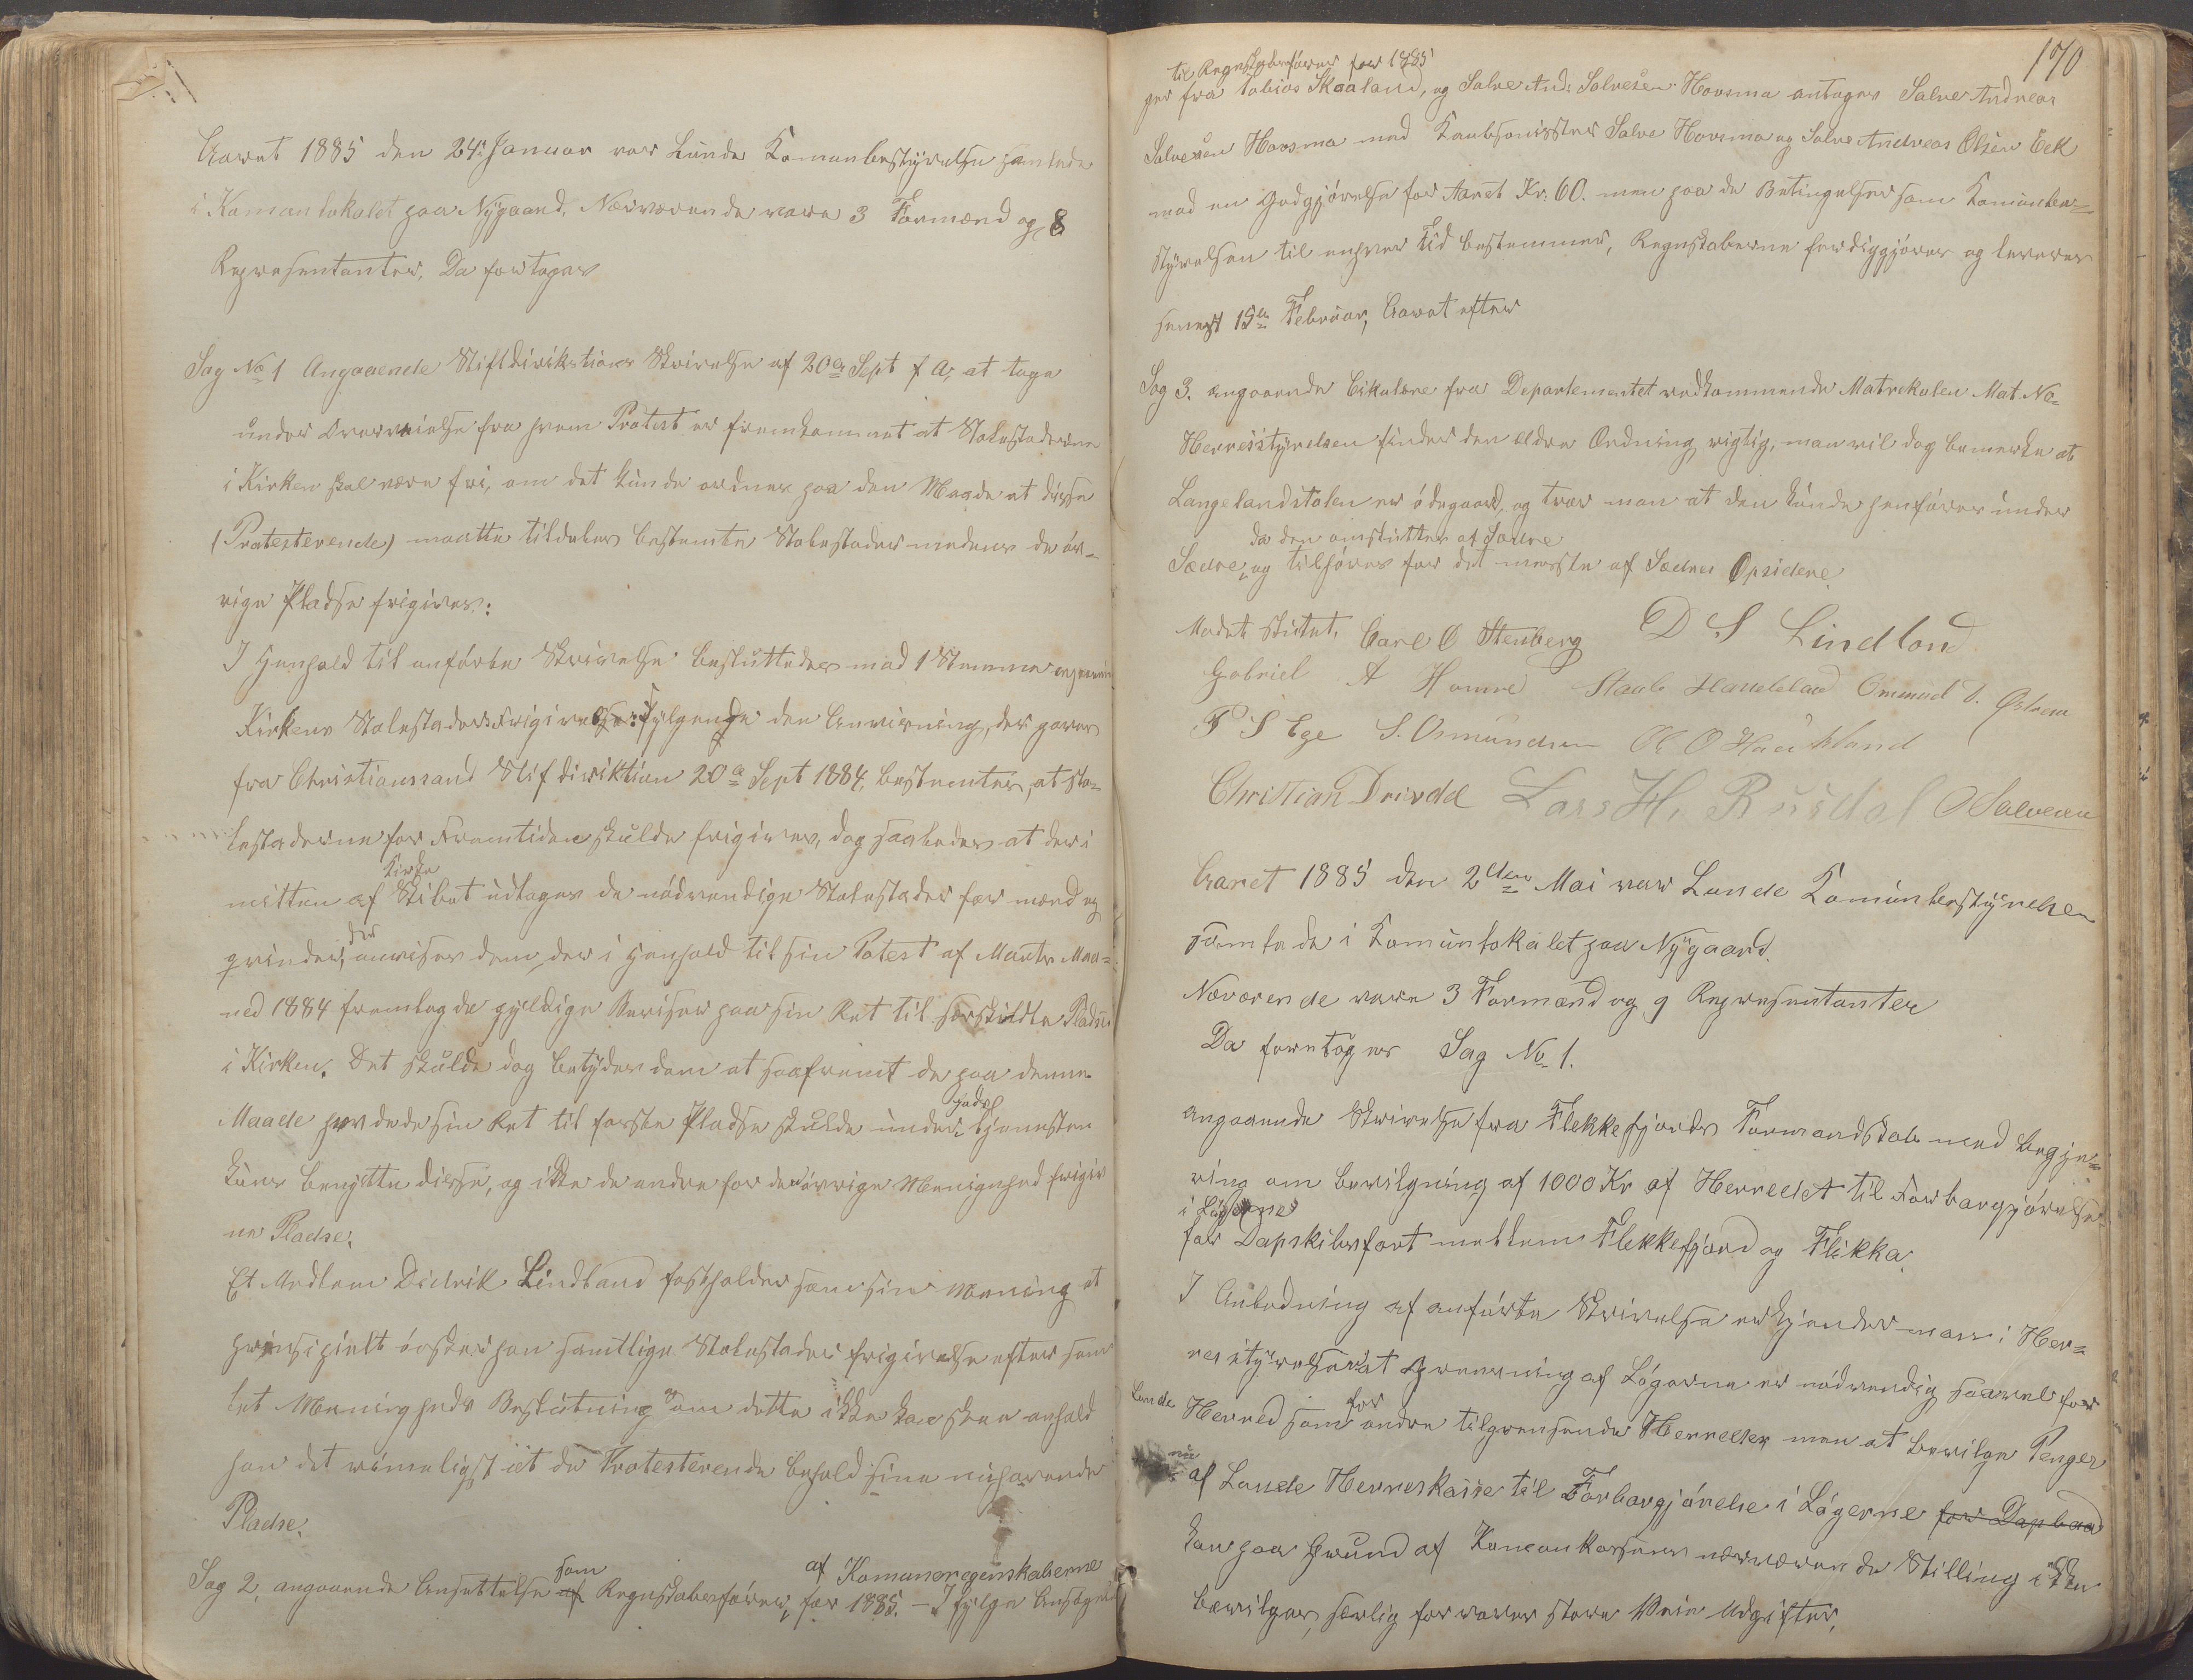 Aaret 1885 den 24. Januar var Lunde Komunbestyrelse samlede
i Komunlokalet paa Nygaard, Nærværende vare 3 Formænd og 8
Representanter, Da foretoges
Sag No 1 Angaaende Stiftdirektions Skrivelse af 20de Sept f A, at tage
under Overveielse fra hvem Protest er fremkommet at Stolestaderne
i Kirken skal være fri, om det kunde ordnes paa den Maade at disse
(Protesterende) maatte tildeles bestemte Stolestader medens de öv-
rige Pladse frigives:
I Henhold til anførte Skrivelse besluttedes mod 1 Stemme angaaende
Kirkens Stolestaders Frigivelse: Fylgende den Anvisning, der gaves
fra Christianssand Stifdirektion 20de Sept 1884, bestemtes, at Sto-
lestaderne for Fremtiden skulde frigives, dog saaledes at der i
Kirke
mitten af Skibet udtages de nödvendige Stolestader for mænd og
qvinder, anvises dem, der i Henhold til sin Potest af Marts Maa-
ned 1884 fremlagde gyldige Beviser paa sin Ret til særskildte Pladse
i Kirken. Det skulde dog betydes dem at saafremt de paa denne
Maade hevdede sin Ret til faste Pladse skulde under Tjenesten
kuns benytte disse, og ikke de andre for den övrige Menighed frigiv
ne Pladse.
Et Medlem Didrik Lindland fastholder som sin Mening at
prinsipielt önsker han samtlige Stolestader frigivelse efter sam
let Menigheds Beslutning om dette ikke kan skee anseet
han det rimeligst at de Protesterende behold sine nuhavende
Pladse.
som af Komuneregenskaberne
Sag 2, angaaende Ansettelse af Regnskabsförer, for 1885. - I fylge Ansögnin
170
til Regnskabsförer for 1885
ger fra Tobias Skaaland, og Salve And. Salvesen Hovsma antages Salve Andreas
Salvesen Hovsma med Kautionister Salve Hovsma og Salve Andreas Olsen Eek
mod en Godgjörelse for Aaret Kr: 60. men paa de Betingelser som Komunbe-
styrelsen til enhver Tid bestemmer, Regnskaberne ferdiggjöres og leveres
senest 15de Februar, Aaret efter
Sag 3. angaaende Cikulære fra Departementet vedkommende Matrekulen Mat. No-
Herresstyrelsen finder den ældre Ordning rigtig, man vil dog bemerke at
Langelandstolen er ödegaard, og tror man at den kunde henföres under
da den omsluttes af Sædre
Sædre, og tilhöres for det meste af Sædres Opsidere.
Mødet sluttet. Carl O Stenberg D S Lindland
Gabriel A Homme Staale Haneland Ommund O. Østrem
P S Ege S. Osmundsen Ole O Haukland
Christian Drivdal Lars H. Rusdal O Salvesen
Aaret 1885 den 2den Mai var Lunde Komunbestyrelsen
samlede i Komunlokalet paa Nygaard.
Nærværende vare 3 Formænd og 9 Representanter
Da foretoges Sag No 1.
angaaende Skrivelse fra Flekkefjords Formandskab med Begje-
ring om Bevilgning af 1000 Kr af Herredet til Farbargjörelse
i Lögerne
for Dapskibsfart mellem Flekkefjord og Flikka.
I Anledning af anførte Skrivelse erkjender man i Her-
resstyrelsen at Åbning af Lögerne er nödvendig saavel for
Lunde Herred som for andre tilgrensende Herreder, men at bevilge Penger
nu
af Lunde Herreskasse til Farbargjörelse i Lögerne for Dapbaad
kan paa Grund af Komunkassens nærværende Stilling ikke
bevilges, særlig for vores store Vein Udgifter,